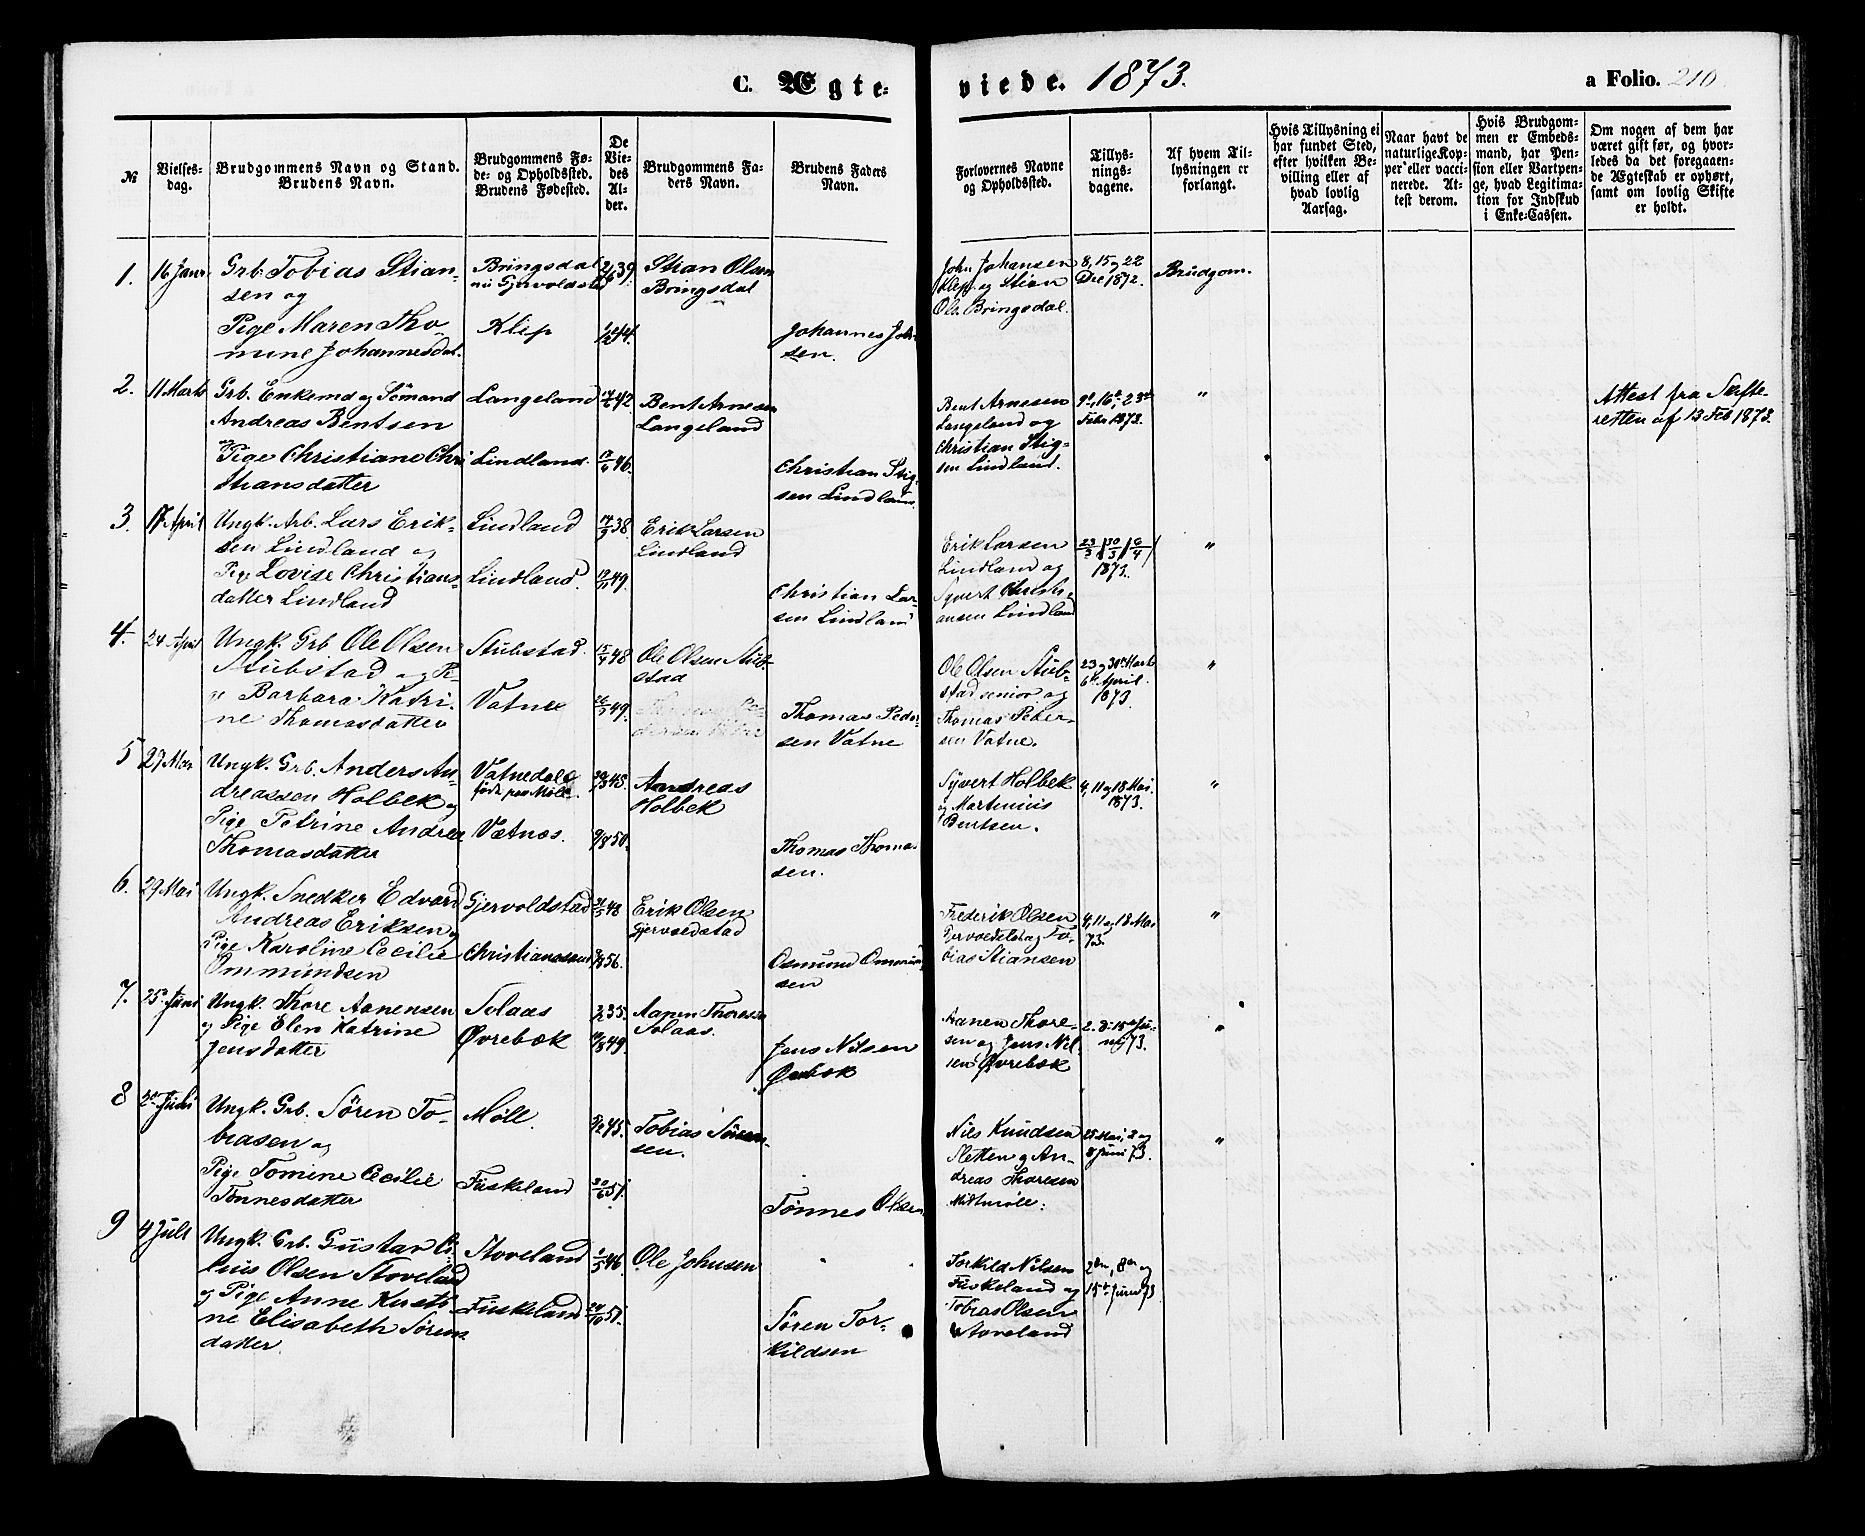 C. Ægte- viede. 1873. a Folio. 210.
№
Vielses-
dag.
Brudgommens Navn og Stand.
Brudens Navn.
Brudgommens Fø-
de- og Opholdssted.
Brudens Fødested.
De
Vie-
des
Al-
der.
Brudgommens Fa-
ders Navn.
Brudens Faders
Navn.
Forlovernes Navne
og Opholdssted.
Tillys-
nings-
dagene.
Af hvem Til-
lysningen er
forlangt.
Hvis Tillysning ei
har fundet Sted,
efter hvilken Be-
villing eller af
hvad lovlig
Aarsag.
Naar havt de
naturlige Kop-
per eller vacci-
nerede. At-
test derom.
Hvis Brudgom-
men er Embeds-
mand, har Pen-
sion eller Vartpen-
ge, hvad Legitima-
tion for Indskud
i Enke-Cassen.
Om nogen af dem har
været gift før, og hvor-
ledes da det foregaaen-
de Ægteskab er ophørt,
samt om lovlig Skifte
er holdt.
1. 16 Janr
Grb. Tobias Stian-
sen og
Pige Maren Tho-
mine Johannesdat.
Bringsdal
nu Gjervoldstad
Klep
39
44.
Stian Olsen
Bringsdal
Johannes Joh-
sen.
John Johansen
Klep og Stian
Ols. Bringsdal.
8, 15 og 22
Dec 1872.
Brudgom.
2. 11 Marts
Grb. Enkemd og Sømand
Andreas Bentsen
og Pige Christiane Chri
stiansdatter
Langeland
Lindland.
42
46.
Bent Arnesen
Langeland
Christian Stig-
sen Lindland
Bent Arnesen
Langeland og
Christian Stig-
sen Lindland.
9de, 16de, 23de
Febr 1873.
"
Attest fra Skifte-
retten af 13 Feb 1873.
3. 17 April
Ungk. Arb. Lars Erik-
sen Lindland og
Pige Lovise Christians-
datter Lindland
Lindland
Lindland.
38.
49.
Erik Larsen
Lindland
Christian Lar-
sen Lindland
Erik Larsen
Lindland og
Syvert Christi-
ansen Lindland
23/3 30/3 6/4
1873.
"
4. 24 April
Ungk. Grb. Ole Olsen
Stubstad og Pi-
ge Barbara Katri-
ne Thomasdatter
Stubstad.
Vatne
48
49.
Ole Olsen Stub-
stad
Thomas Peder-
sen Vatne
Ole Olsen Stub-
stad senior og
Thomas Peder-
sen Vatne.
23 og 30te Marts
6te April.
1873.
"
5 27 Mai
Ungk. Grb. Anders An-
dreassen Holbek og
Pige Petrine Andrea
Thomasdatter
Vatnedal
født paa Møll.
Vætnæs.
45.
50.
Andreas
Holbek
Thomas Thoma-
sen.
Syvert Holbek
og Martinius
Bentsen.
4, 11 og 18 Mai.
1873.
"
6. 29 Mai
Ungk. Snedker Edvard
Andreas Eriksen og
Pige Karoline Cecilie
Ommundsen
Gjervoldstad
Christianssand
48
56.
Erik Olsen
Gjervoldstad
Osmund Ommund-
sen
Frederik Olsen
Gjervoldstad og To-
bias Stiansen
4, 11 og 18 Mai
73.
"
7. 25de Juni
Ungk. Thore Aanensen
og Pige Elen Katrine
Jensdatter
Solaas
Øvrebøk
35.
49.
Aanen Thoresen
Solaas.
Jens Nilsen
Øvrebøk
Aanen Thore-
sen og Jens Nil-
sen Øvrebøk
2. 8. 15de Ju-
ni 73.
"
8
Ungk. Grb. Søren To-
biasen og
Pige Tomine Cecilie
Tønnesdatter
Møll.
Fuskeland
45.
51.
Tobias Søren-
sen.
Tønnes Olsen
Nils Knudsen
Sletten og An-
dreas Thoresen
Midtmøll.
25 Mai, 2 og
8 Juni 73.
"
9 4 Juli
Ungk. Grb. Gustav Ci-
lius Olsen Stoveland
og Pige Anne Kirsti-
ne Elisabeth Sørens
datter.
Stoveland
Fuskeland
46.
51.
Ole Johnsen
Søren Tor-
kildsen
Torkild Nilsen
Fuskeland og
Tobias Olsen
Stoveland
2den, 8de og
15de Juni 73